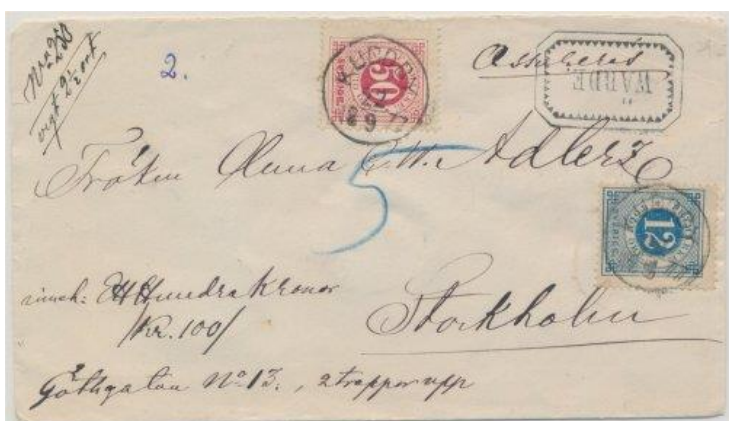 No 238
vigt 2½ ort
2.
50
12
9
Assureras
WARDE
Fröken Anna E. W. Adlerz
5
12
inneh: Ett Hundra Kronor
/Kr. 100/
Stockholm
Göthgatan No 13., 2 trappor upp